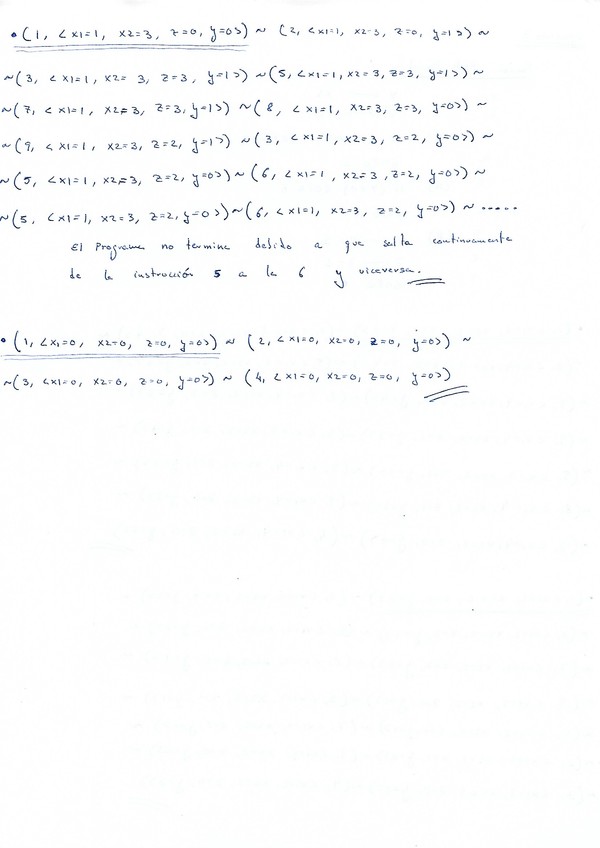 • (1, <x1=1, x2=3, z=0, y=0>) ~ (2, <x1=1, x2=3, z=0, y=1>) ~
~(3, <x1=1, x2=3, z=3, y=1>) ~(5, <x1=1, x2=3, z=3, y=1>) ~
~(7, <x1=1, x2=3, z=3, y=1>) ~(8, <x1=1, x2=3, z=3, y=0>) ~
~(9, <x1=1, x2=3, z=2, y=1>) ~(3, <x1=1, x2=3, z=2, y=0>) ~
~(5, <x1=1, x2=3, z=2, y=0>) ~(6, <x1=1, x2=3, z=2, y=0>) ~
~(5, <x1=1, x2=3, z=2, y=0>) ~(6, <x1=1, x2=3, z=2, y=0>) ~ .....
El Programa no termina debido a que salta continuamente
de la instrucción 5 a la 6 y viceversa.
• (1, <x1=0, x2=0, z=0, y=0>) ~ (2, <x1=0, x2=0, z=0, y=0>) ~
~(3, <x1=0, x2=0, z=0, y=0>) ~ (4, <x1=0, x2=0, z=0, y=0>)